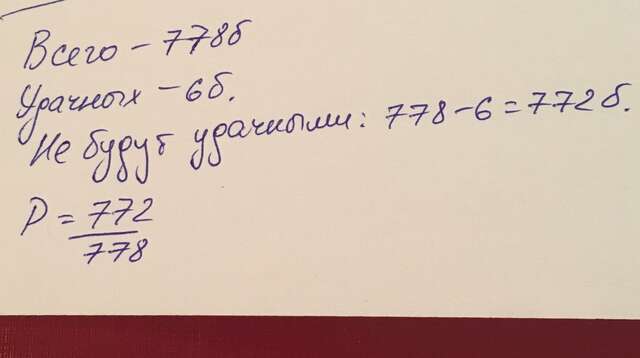 Всего – 778б
Удачных – 6б.
Не будут удачными: 778 – 6 = 772 б.
P = 772
778